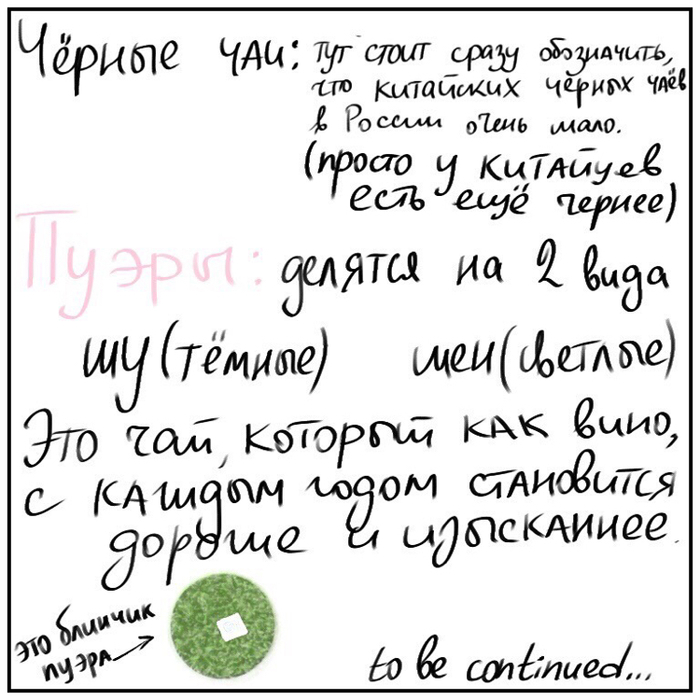 Чёрные чаи: тут стоит сразу обозначить,
что китайских чёрных чаёв
в России очень мало.
(просто у китайцев
есть ещё чернее)
Пуэры: делятся на 2 вида
шу (тёмные) шен (светлые)
Это чай, который как вино,
с каждым годом становится
дороже и изысканнее.
это блинчик
пуэра
to be continued...